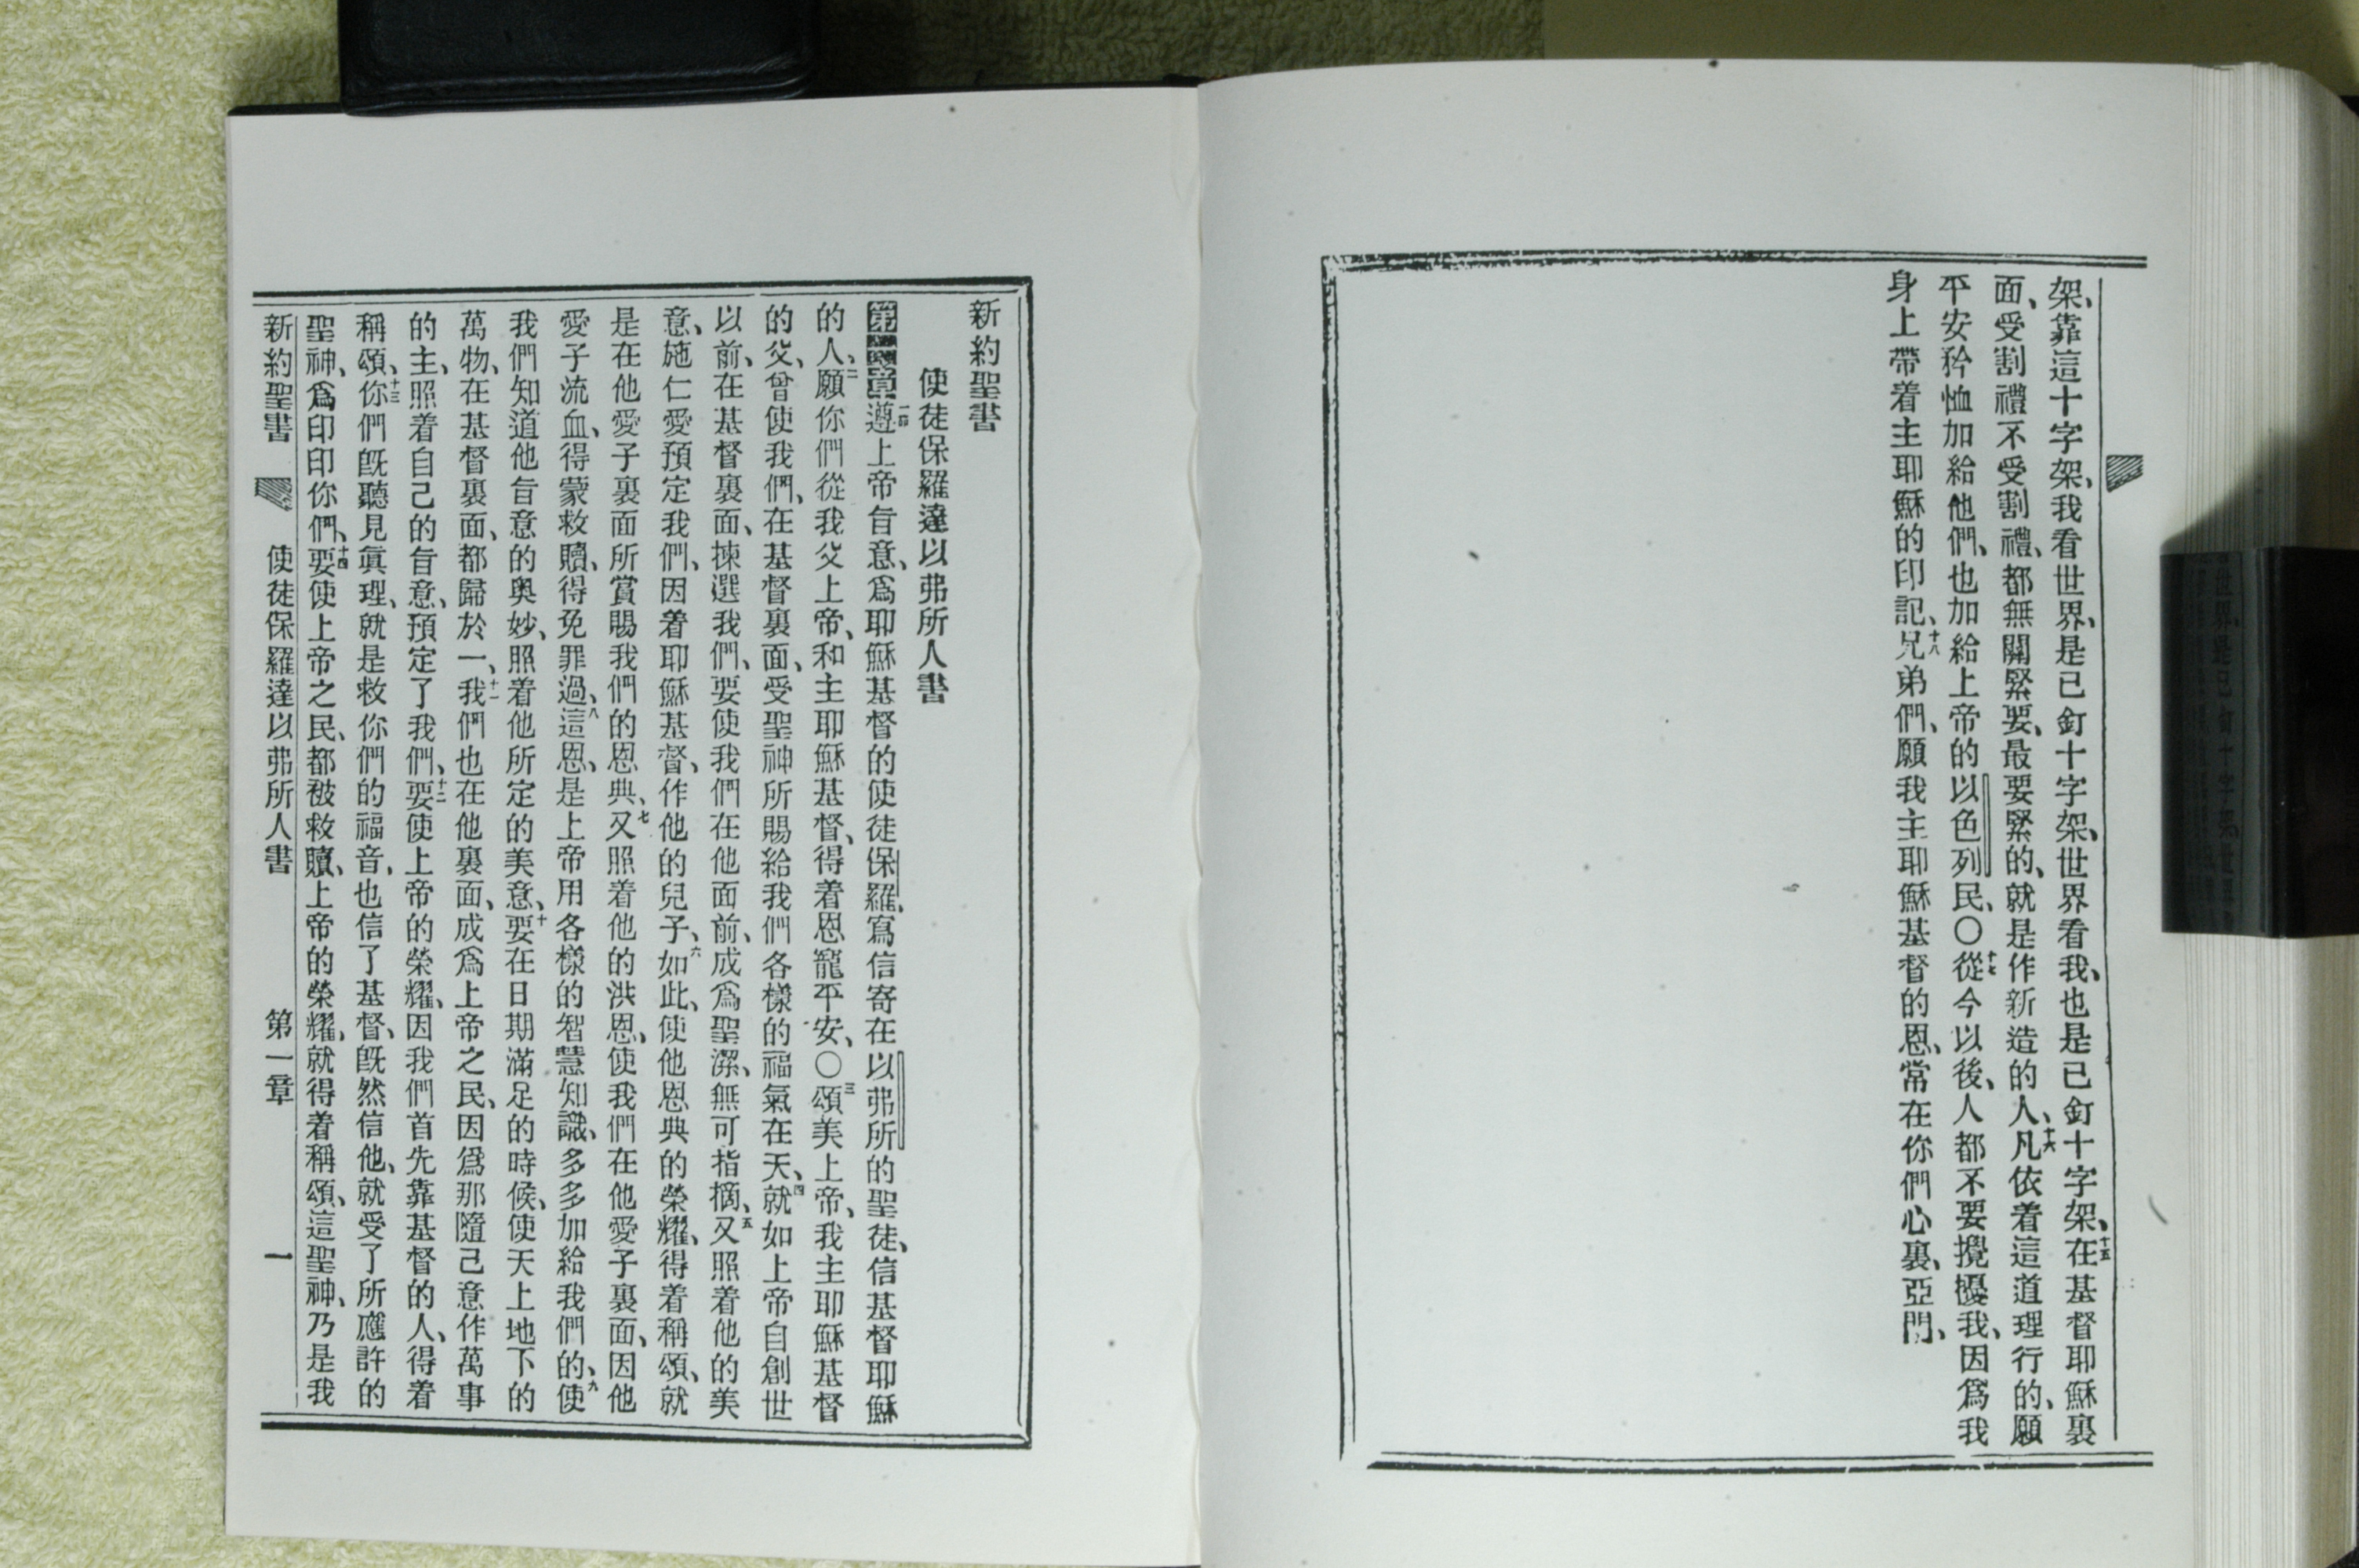 架、靠這十字架、我看世界、是已釘十字架、世界看我、也是已釘十字架、十五在基督耶穌裏
面、受割禮不受割禮、都無關緊要、最要緊的、就是作新造的人、十六凡依着這道理行的、願
平安矜恤加給他們、也加給上帝的以色列民、〇十七從今以後、人都不要攪擾我、因爲我
身上帶着主耶穌的印記、十八兄弟們、願我主耶穌基督的恩、常在你們心裏、亞門、
新約聖書
使徒保羅達以弗所人書
第一章一節遵上帝旨意、爲耶穌基督的使徒保羅、寫信寄在以弗所的聖徒、信基督耶穌
的人、二願你們從我父上帝、和主耶穌基督、得着恩寵平安、〇三頌美上帝、我主耶穌基督
的父、曾使我們、在基督裏面、受聖神所賜給我們各樣的福氣在天、四就如上帝自創世
以前、在基督裏面、揀選我們、要使我們在他面前、成爲聖潔、無可指摘、五又照着他的美
意、施仁愛預定我們、因着耶穌基督、作他的兒子、六如此、使他恩典的榮耀、得着稱頌、就
是在他愛子裏面所賞賜我們的恩典、七又照着他的洪恩、使我們在他愛子裏面、因他
愛子流血、得蒙救贖、得免罪過、八這恩、是上帝用各樣的智慧知識、多多加給我們的、九使
我們知道他旨意的奧妙、照着他所定的美意、十要在日期滿足的時候、使天上地下的
萬物、在基督裏面、都歸於一、十一我們也在他裏面、成爲上帝之民、因爲那隨己意作萬事
的主、照着自己的旨意、預定了我們、十二要使上帝的榮耀、因我們首先靠基督的人、得着
稱頌、十三你們旣聽見眞理、就是救你們的福音、也信了基督、旣然信他、就受了所應許的
聖神、爲印印你們、十四要使上帝之民、都被救贖、上帝的榮耀、就得着稱頌、這聖神、乃是我
新約聖書 使徒保羅達以弗所人書 第一章 一